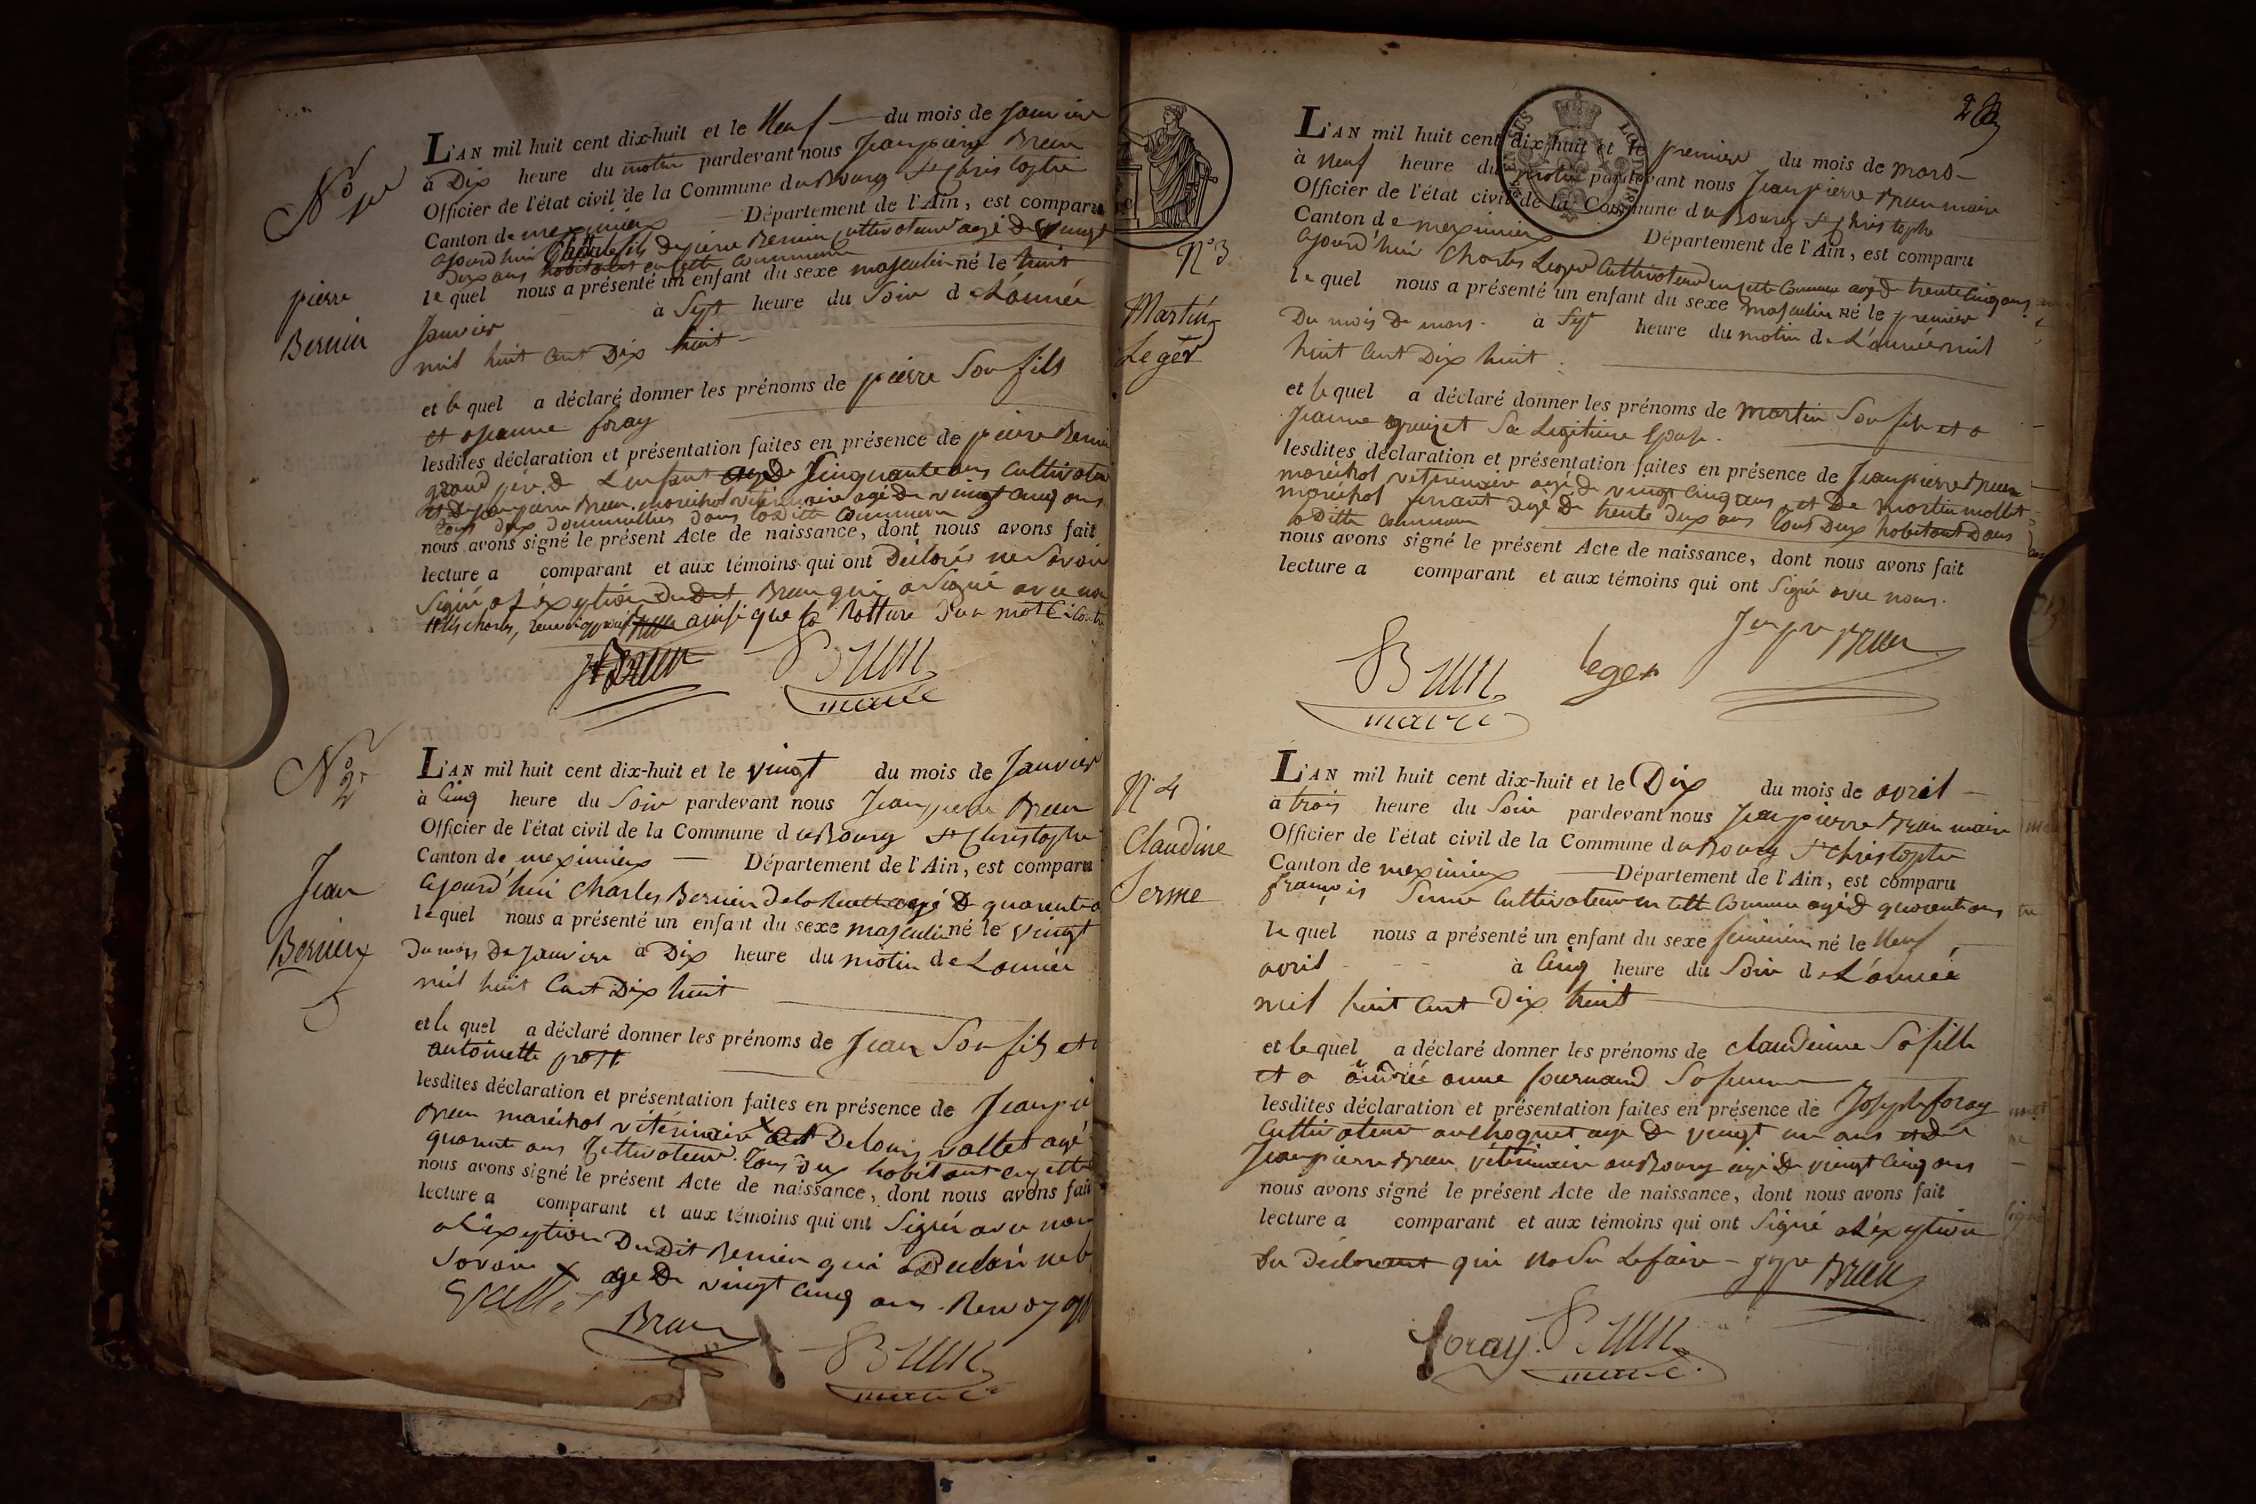 No 1er
pierre
Bernin
L'AN mil huit cent dix-huit et le Neuf du mois de Janvier
à Dix heure du matin pardevant nous Jean pierre Brun
Officier de l'état civil de la Commune du Bourg St Christophe
Canton de meximieux Département de l'Ain, est comparu
ajourd'hui fils de pierre Bernin Cultivateur agé de vingt
Dix ans habitant en cette Commune
le quel nous a présenté un enfant du sexe masculin né le huit
Janvier à Sept heure du Soir de L'année
mil huit Cent Dix huit
et le quel a déclaré donner les prénoms de pierre Son fils
et a jeanne foray
lesdites déclaration et présentation faites en présence de pierre Bernin
grand père de L'enfant agé de Cinquante ans Cultivateur
et De jean pierre Brun maréchal vétérinaire agé de vingt Cinq ans
tous deux dans la Ditte Commune
nous avons signé le présent Acte de naissance, dont nous avons fait
lecture a comparant et aux témoins qui ont Déclarés ne Savoir
Signé a L'exeption Du Dit Brun qui a Signé avec nous
charles, ainsi que la Rotture D'un mot
JP Brun Brun
maire
No 2
Jean
Bernin
L'AN mil huit cent dix-huit et le vingt du mois de Janvier
à Cinq heure du Soir pardevant nous Jean pierre Brun
Officier de l'état civil de la Commune du Bourg St Christophe
Canton de meximieux Département de l'Ain, est comparu
ajourd'hui Charles Bernin agé de quarente
le quel nous a présenté un enfant du sexe masculin né le vingt
Du mois De Janvier à Dix heure du matin de L'année
mil huit Cent Dix huit
et le quel a déclaré donner les prénoms de Jean Son fils et a
antoinette prost
lesdites déclaration et présentation faites en présence de Jean pierre
Brun maréchal vétérinaire x et De Louis vallet agé
quarente ans Cultivateur. Tous deux habitant en cette
nous avons signé le présent Acte de naissance, dont nous avons fait
lecture a comparant et aux témoins qui ont Signé avec nous
a L'exeption Du Dit Bernin qui a Declaré ne le
Savoir x age De vingt Cinq ans. Renvoy
Vallet
Brun
Brun
maire
2
N° 3
Martin
Leger
L'AN mil huit cent dix-huit et le premier du mois de mars
à Neuf heure du matin pardevant nous Jean pierre Brun maire
Officier de l'état civil de la Commune du Bourg St Christophe
Canton de meximieux Département de l'Ain, est comparu
ajourd'hui Charles Leger Cultivateur en cette Commune agé de trente Cinq ans
le quel nous a présenté un enfant du sexe masculin né le premier
Du mois De mars à Sept heure du matin de L'année mil
huit Cent Dix huit
et le quel a déclaré donner les prénoms de martin Son fils et a
Jeanne Sa Legitime Epouse.
lesdites déclaration et présentation faites en présence de Jean pierre Brun
maréchal vétérinaire agé de vingt Cinq ans et De martin mollet
maréchal ferrant agé de trente deux ans Tous Deux habitant Dans
la Ditte Commune
nous avons signé le présent Acte de naissance, dont nous avons fait
lecture a comparant et aux témoins qui ont Signé avec nous.
Brun leger Brun
maire
N° 4
Claudine
Serme
L'AN mil huit cent dix-huit et le Dix du mois de avril
à trois heure du Soir pardevant nous Jean pierre Brun maire
Officier de l'état civil de la Commune du Bourg St Christophe
Canton de meximieux Département de l'Ain, est comparu
françois Serme Cultivateur en cette Commune agé de quarente ans
le quel nous a présenté un enfant du sexe feminin né le Neuf
avril à Cinq heure du Soir de L'année
mil huit Cent Dix huit
et le quel a déclaré donner les prénoms de Claudinne Sa fille
et a andrée anne Sa femme
lesdites déclaration et présentation faites en présence de Joseph foray
Cultivateur au choquet age de vingt un ans et de
Jean pierre Brun vétérinaire au Bourg agé de vingt Cinq ans
nous avons signé le présent Acte de naissance, dont nous avons fait
lecture a comparant et aux témoins qui ont Signé a L'exeption
Du Déclarant qui na Su Le faire Brun
foray. Brun
maire